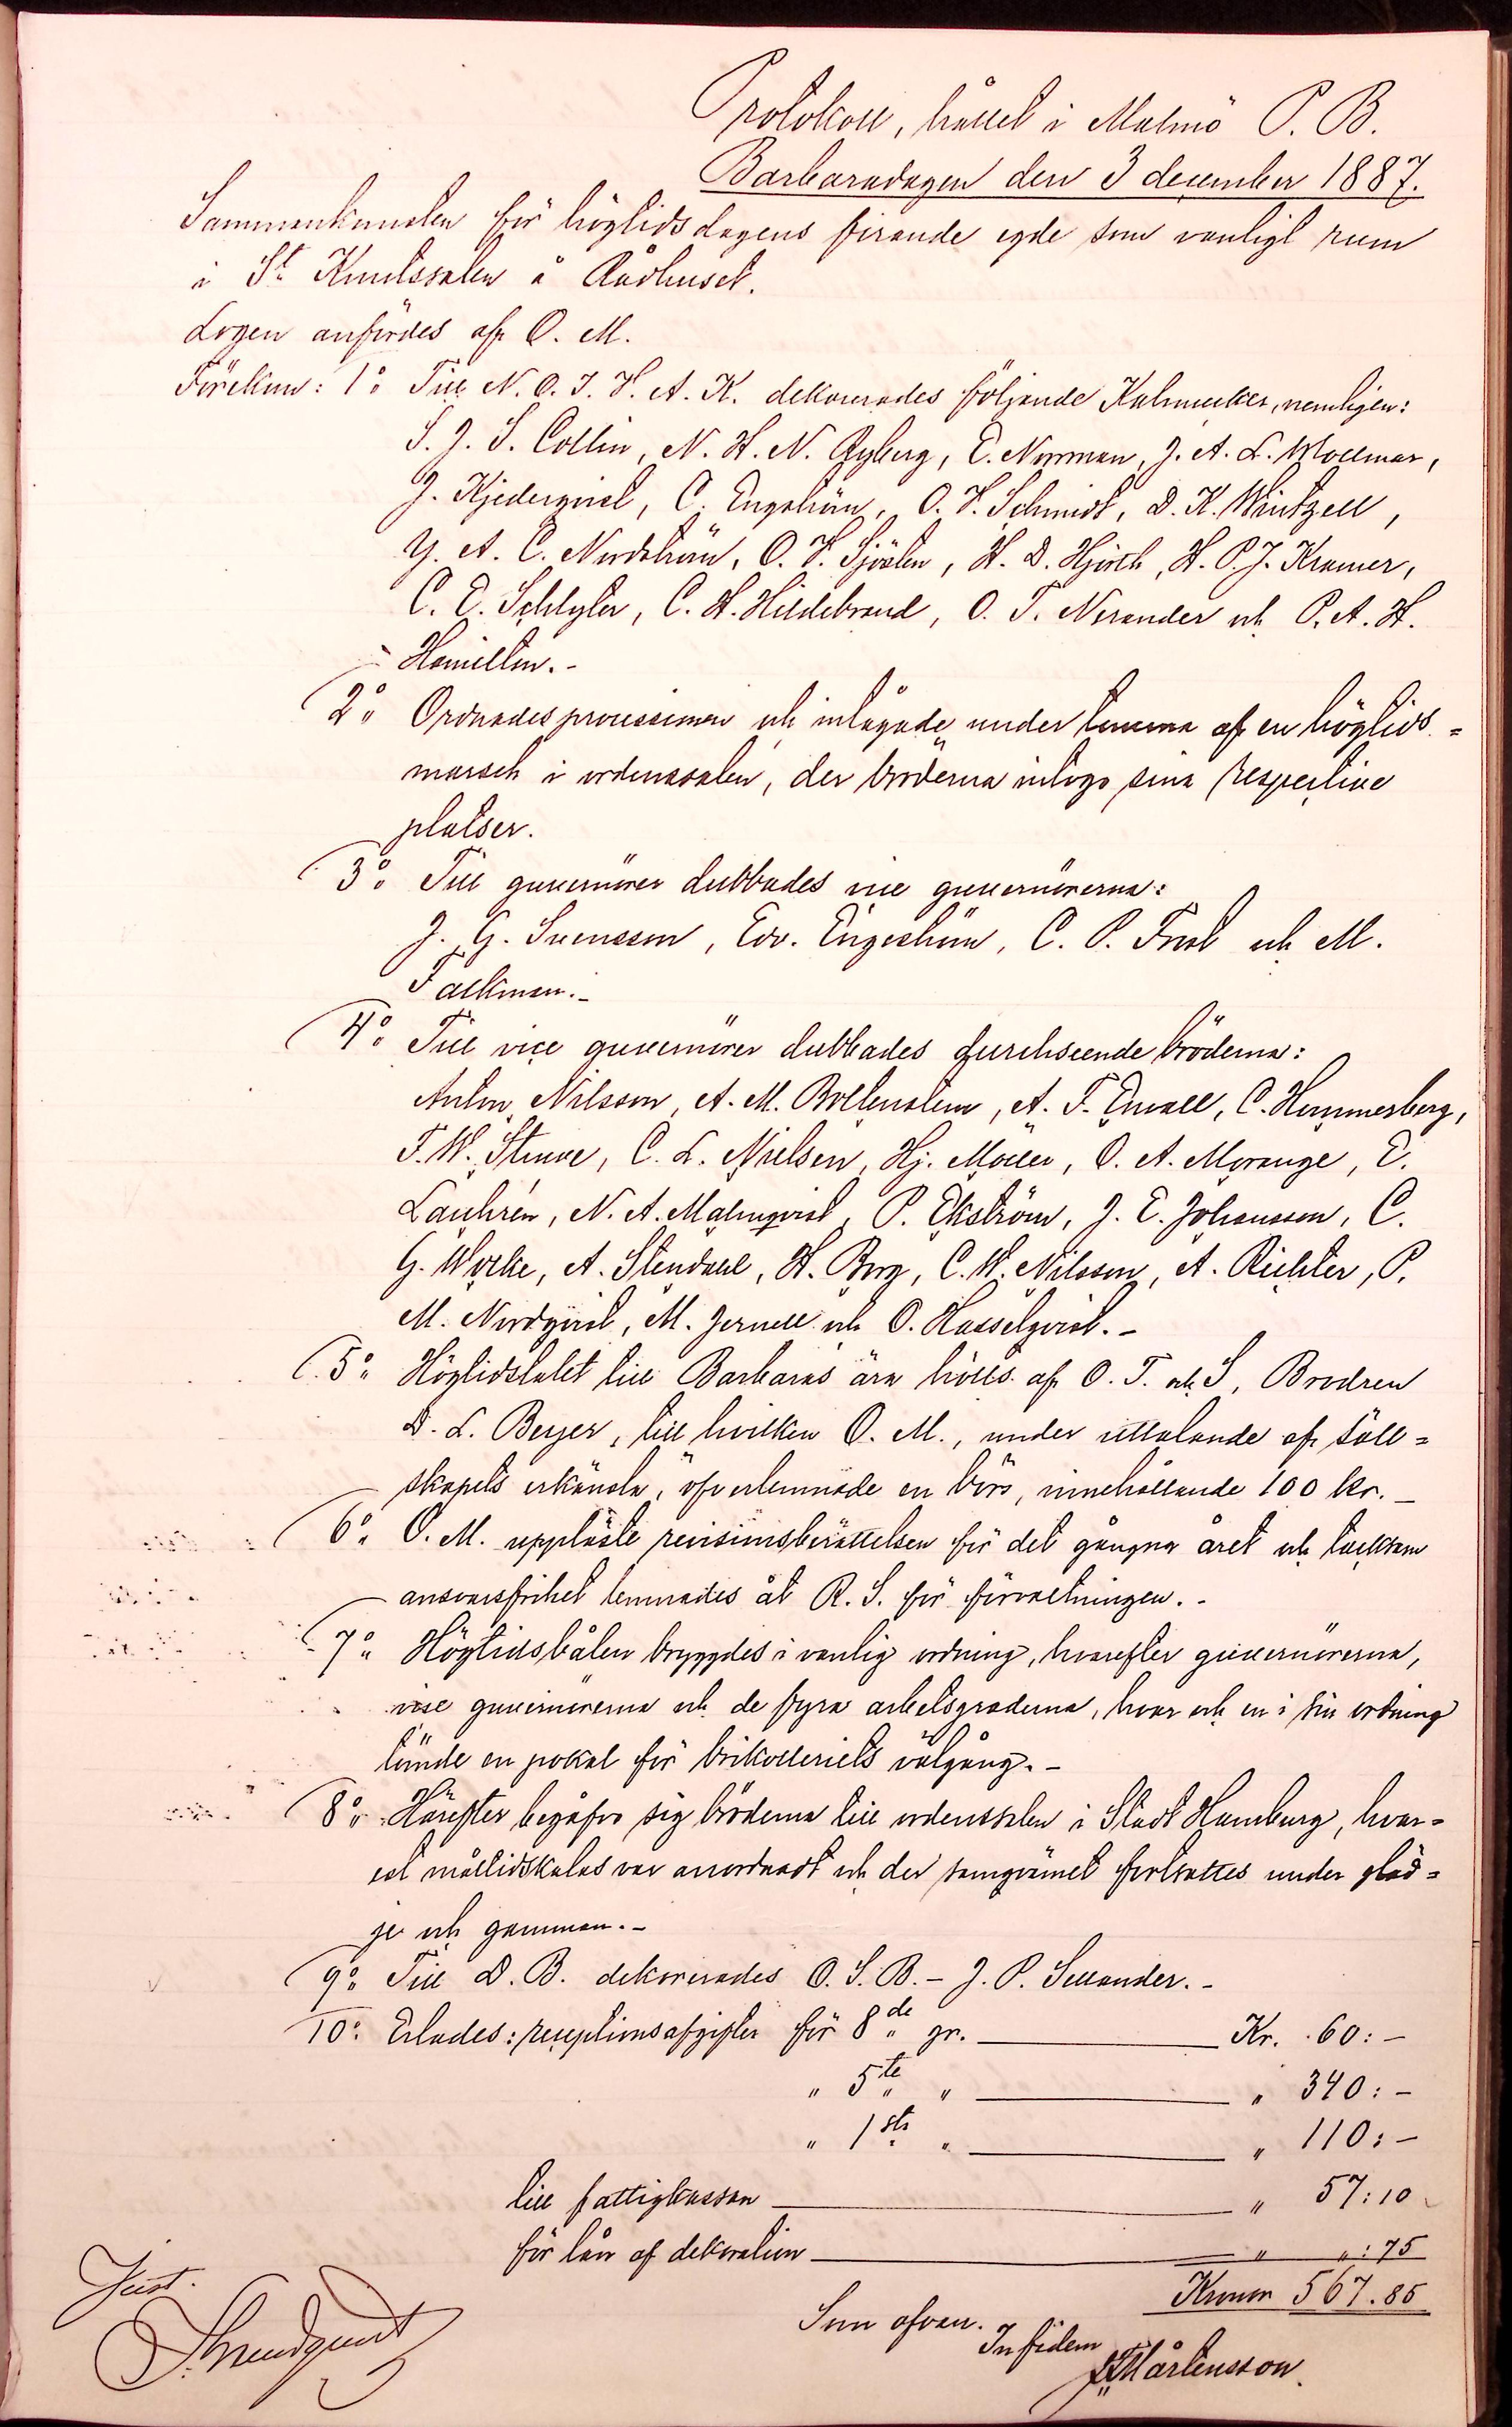 Protokoll, hållet i Malmö P. B.
Barbaradagen den 3 december 1887.
Sammankomsten för högtidsdagens firande egde som vanligt rum
i St Knutssalen å Rådhuset.
Logen anfördes af O. M.
Förekom: 1o Till N. O. I. H. A. K. dekorerades följande Kalmucker, nemligen:
S. J. S. Collin, N. H. N. Ryberg, E. Norrman, J. A. L. Wollmar,
J. Kjederqvist, C. Engström, O. H. Schmidt, D. K. Wintzell,
Y. A. C. Nordström, O. H. Sjösten, H. D. Hjorth, H. P. J. Kramer,
C. E. Schlyter, C. H. Hildebrand, O. T. Nerander och P. A. H.
Hamilton.-
2o Ordnades processionen och intågade under tonerna af en högtids=
marsch i ordenssalen, der bröderna intogo sina respective
platser.
3o Till guvernörer dubbades vice guvernörerna:
J. G. Svensson, Edv. Engeström, C. P. Frost och M.
Falkman.-
4o Till vice guvernörer dubbades genomseende bröderna:
Anton Nilsson, A. M. Boltenstern, A. F. Enwall, C. Hammerberg,
F. W. Struve, C. L. Nielsen, Hj. Möller, O. A. Morange, E.
Lauhrén, N. A. Malmqvist, P. Ekström, J. E. Johansson, C.
G. Wycke, A. Stendahl, H. Borg, C. W. Nilsson, A. Richter, P.
M. Nordqvist, M. Jernell och O. Hasselqvist.-
5o Högtidstalet till Barbaras ära hölls af O. T. och S, Brodren
D. L. Beyer, till hvilken O. M., under uttalande af säll=
skapets erkänsla, öfverlemnade en börs, innehållande 100 kr.-
6o O. M. uppläste revisionsberättelsen för det gångna året och tacksam
ansvarsfrihet lemnades åt R. S. för förvaltningen.-
7o Högtidsbålen bryggdes i vanlig ordning, hvarefter guvernörerna,
vice guvernörerna och de fyra arbetsgraderna, hvar och en i sin ordning
tömde en pokal för brikolleriets välgång.-
8o Härefter begåfvo sig bröderna till ordenssalen i Stadt Hamburg, hvar=
est måltidskalas var anordnadt och der samqvämet fortsattes under gläd=
je och gamman.-
9o Till D. B. dekorerades O. S. B. - J. P. Sellander.-
10o Erlades: receptionsafgifter för 8de gr. Kr. 60:-
" 5te " " 340:-
" 1sta " " 110:-
till fattigkassan " 57:10
för lån af dekoration " ":75
Kronor 567.85
Som ofvan.
In fidem
Mårtensson
Just.